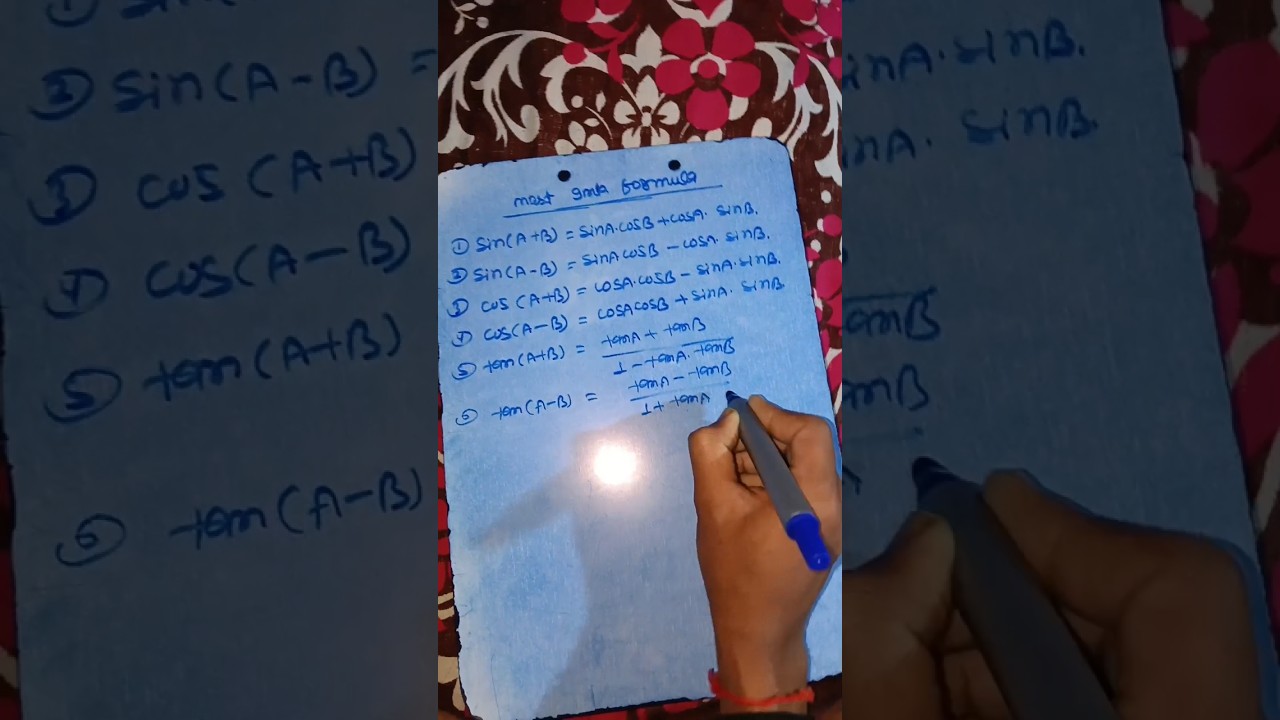 most Imp formula
① sin(A+B) = sinA.cosB + cosA. sinB.
② sin(A-B) = sinA cosB - cosA. sinB.
③ cos (A+B) = cosA.cosB - sinA.sinB.
④ cos(A-B) = cosAcosB + sinA. sinB
⑤ tan(A+B) = tanA + tanB
1 - tanA. tanB
⑥ tan(A-B) = tanA - tanB
1 + tanA